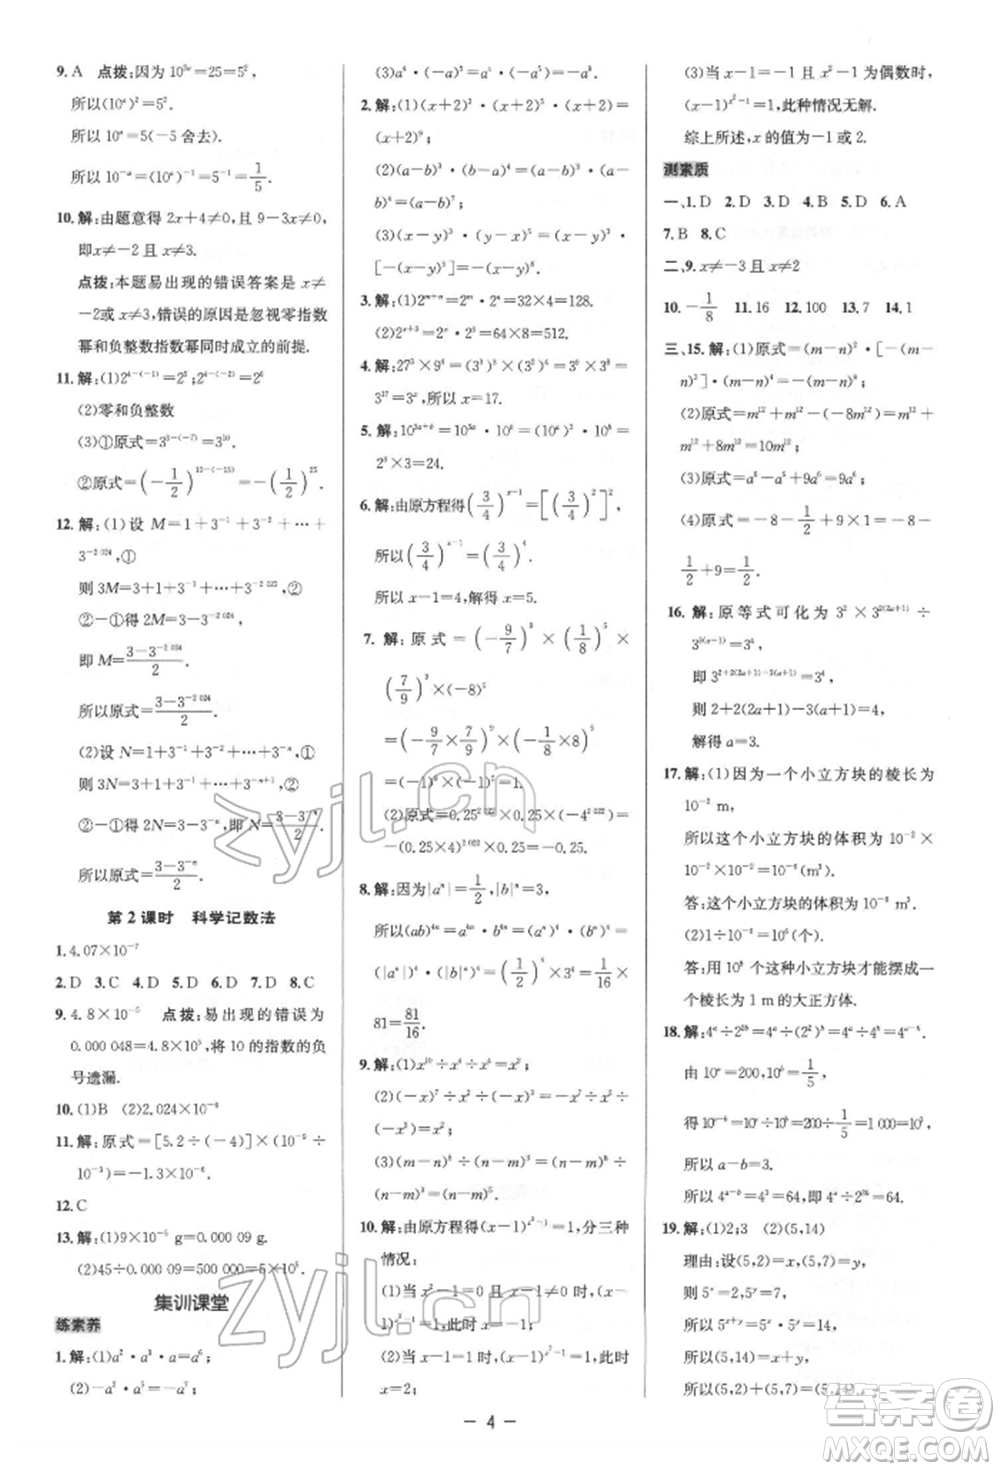 9. A 点拨:因为10^{3a}=25=5²,
所以(10^a)²=5².
所以10^a=5(-5舍去).
所以10^{-a}=(10^a)^{-1}=5^{-1}=1/5.
10. 解:由题意得2x+4≠0,且9-3x≠0,
即x≠-2且x≠3.
点拨:本题易出现的错误答案是x≠
-2或x≠3,错误的原因是忽视零指数
幂和负整数指数幂同时成立的前提.
11. 解:(1)2^{4-(-1)}=2^5;2^{4-(-2)}=2^6
(2)零和负整数
(3)①原式=3^{3-(-7)}=3^{10}.
②原式=(-1/2)^{10-(-15)}=(-1/2)^{25}
12. 解:(1)设M=1+3^{-1}+3^{-2}+…+
3^{-2 024},①
则3M=3+1+3^{-1}+…+3^{-2 023},②
②-①得2M=3-3^{-2 024},
即M=(3-3^{-2 024})/2.
所以原式=(3-3^{-2 024})/2.
(2)设N=1+3^{-1}+3^{-2}+…+3^{-n},①
则3N=3+1+3^{-1}+…+3^{-n+1},②
②-①得2N=3-3^{-n},即N=(3-3^{-n})/2.
所以原式=(3-3^{-n})/2.
第2课时 科学记数法
1. 4.07×10^{-7}
2. D 3. C 4. D 5. D 6. D 7. D 8. C
9. 4.8×10^{-5} 点拨:易出现的错误为
0.000 048=4.8×10^5,将10的指数的负
号遗漏.
10. (1)B (2)2.024×10^{-6}
11. 解:原式=[5.2÷(-4)]×(10^{-3}÷
10^3)=-1.3×10^{-6}.
12. C
13. 解:(1)9×10^{-5} g=0.000 09 g.
(2)45÷0.000 09=500 000=5×10^5.
集训课堂
练素养
1. 解:(1)a²·a³·a=a^6;
(2)-a²·a^5=-a^7;
(3)a^4·(-a)^5=a^4·(-a^5)=-a^9.
2. 解:(1)(x+2)^3·(x+2)^5·(x+2)=
(x+2)^9;
(2)(a-b)^3·(b-a)^4=(a-b)^3·
(a-b)^4=(a-b)^7;
(3)(x-y)^3·(y-x)^5=(x-y)^3·
[-(x-y)^5]=-(x-y)^8.
3. 解:(1)2^{m+n}=2^m·2^n=32×4=128.
(2)2^{n+3}=2^n·2^3=64×8=512.
4. 解:27^3×9^4=(3^3)^3×(3^2)^4=3^9×3^8=
3^{17}=3^x,所以x=17.
5. 解:10^{3a+b}=10^{3a}·10^b=(10^a)^3·10^b=
2^3×3=24.
6. 解:由原方程得(3/4)^{x-1}=[(3/4)^2]^2,
所以(3/4)^{x-1}=(3/4)^4,
所以x-1=4,解得x=5.
7. 解:原式=(-9/7)^3×(1/8)^5×
(7/9)^3×(-8)^5
=(-9/7×7/9)^3×(-1/8×8)^5
=(-1)^3×(-1)^5=1.
(2)原式=0.25^{2 022}×0.25×(-4)^{2 022}
=(-0.25×4)^{2 022}×(-0.25)=-0.25.
8. 解:因为|a^n|=1/2,|b|^n=3,
所以(ab)^{4n}=a^{4n}·b^{4n}=(a^n)^4·(b^n)^4=
(|a^n|)^4·(|b|^n)^4=(1/2)^4×3^4=1/16×
81=81/16.
9. 解:(1)x^{10}÷x^4÷x^4=x^2;
(2)(-x)^7÷x^2÷(-x)^3=-x^7÷x^2÷
(-x^3)=x^2;
(3)(m-n)^8÷(n-m)^3=(n-m)^8÷
(n-m)^3=(n-m)^5.
10. 解:由原方程得(x-1)^{x²-1}=1,分三种
情况:
(1)当x²-1=0且x-1≠0时,(x-
1)^{x²-1}=1,此时x=-1;
(2)当x-1=1时,(x-1)^{x²-1}=1,此时
x=2;
(3)当x-1=-1且x²-1为偶数时,
(x-1)^{x²-1}=1,此种情况无解.
综上所述,x的值为-1或2.
测素质
一、1. D 2. D 3. D 4. B 5. D 6. A
7. B 8. C
二、9. x≠-3且x≠2
10. -1/8 11. 16 12. 100 13. 7 14. 1
三、15. 解:(1)原式=(m-n)²·[-(m-
n)^3]·(m-n)^4=-(m-n)^9.
(2)原式=m^{12}+m^{12}-(-8m^{12})=m^{12}+
m^{12}+8m^{12}=10m^{12}.
(3)原式=a^6-a^6+9a^6=9a^6.
(4)原式=-8-1/2+9×1=-8-
1/2+9=1/2.
16. 解:原等式可化为3²×3^{2(2a+1)}÷
3^{3(a+1)}=3^4,
即3^{2+2(2a+1)-3(a+1)}=3^4,
则2+2(2a+1)-3(a+1)=4,
解得a=3.
17. 解:(1)因为一个小立方块的棱长为
10^{-2} m,
所以这个小立方块的体积为10^{-2}×
10^{-2}×10^{-2}=10^{-6}(m³).
答:这个小立方块的体积为10^{-6} m³.
(2)1÷10^{-6}=10^6(个).
答:用10^6个这种小立方块才能摆成一
个棱长为1 m的大正方体.
18. 解:4^a÷2^{2b}=4^a÷(2²)^b=4^a÷4^b=4^{a-b}.
由10^a=200,10^b=1/5,
得10^a÷10^b=200÷1/5=1 000=10^3,
所以a-b=3.
所以4^{a-b}=4^3=64,即4^a÷2^{2b}=64.
19. 解:(1)2;3 (2)(5,14)
理由:设(5,2)=x,(5,7)=y,
则5^x=2,5^y=7,
所以5^{x+y}=5^x·5^y=14.
所以(5,14)=x+y,
所以(5,2)+(5,7)=(5,14).
— 4 —
zyjl.cn
zyjl.cn
答案圈
MXQE.COM